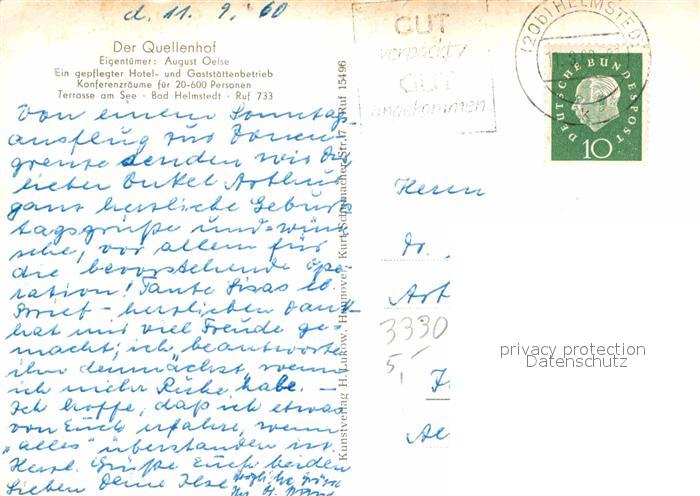 d. 11. 9. 60
Der Quellenhof
Eigentümer: August Oelse
Ein gepflegter Hotel- und Gaststättenbetrieb
Konferenzräume für 20-600 Personen
Terrasse am See · Bad Helmstedt · Ruf 733
Von einem Sonntags-
ausflug zur Zonen-
grenze senden wir Dir
lieber Onkel Arthur
ganz herzliche Geburts
tagsgrüße und -wün-
sche, vor allem für
die bevorstehende Ope-
ration! Tante Lisas lb.
Brief - herzlichen Dank -
hat mir viel Freude ge-
macht; ich beantworte
ihn demnächst, wenn
ich mehr Ruhe habe. -
Ich hoffe, daß ich etwas
von Euch erfahre, wenn
„alles" überstanden ist.
Herzl. Grüße Euch beiden
Lieben Deine Ilse
Herzliche Grüße
Kunstverlag H. Lukow, Hannover, Kurt-Schumacher-Str. 7, Ruf 15496
GUT
verpackt
GUT
angekommen
(20b) HELMSTEDT
DEUTSCHE BUNDESPOST
10
Herrn
Dr.
Art
3330
5,-
privacy protection
Datenschutz